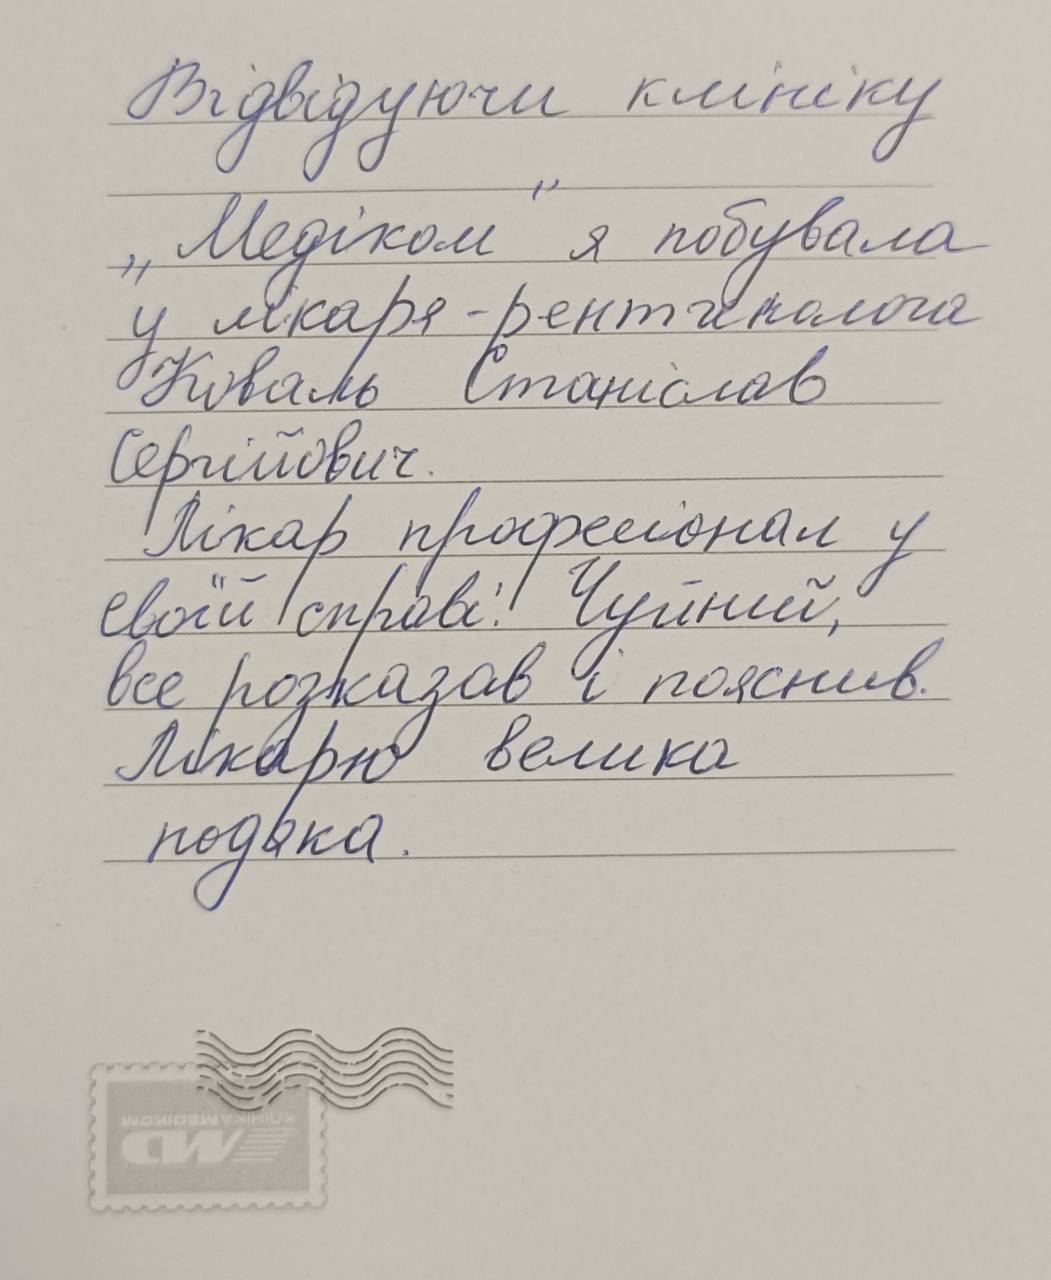 Відвідуючи клініку
„Медіком" я побувала
у лікаря-рентгенолога
Коваль Станіслав
Сергійович.
Лікар професіонал у
своїй справі! Чуйний,
все розказав і пояснив.
Лікарю велика
подяка.
КЛІНІКА MEDIKOM